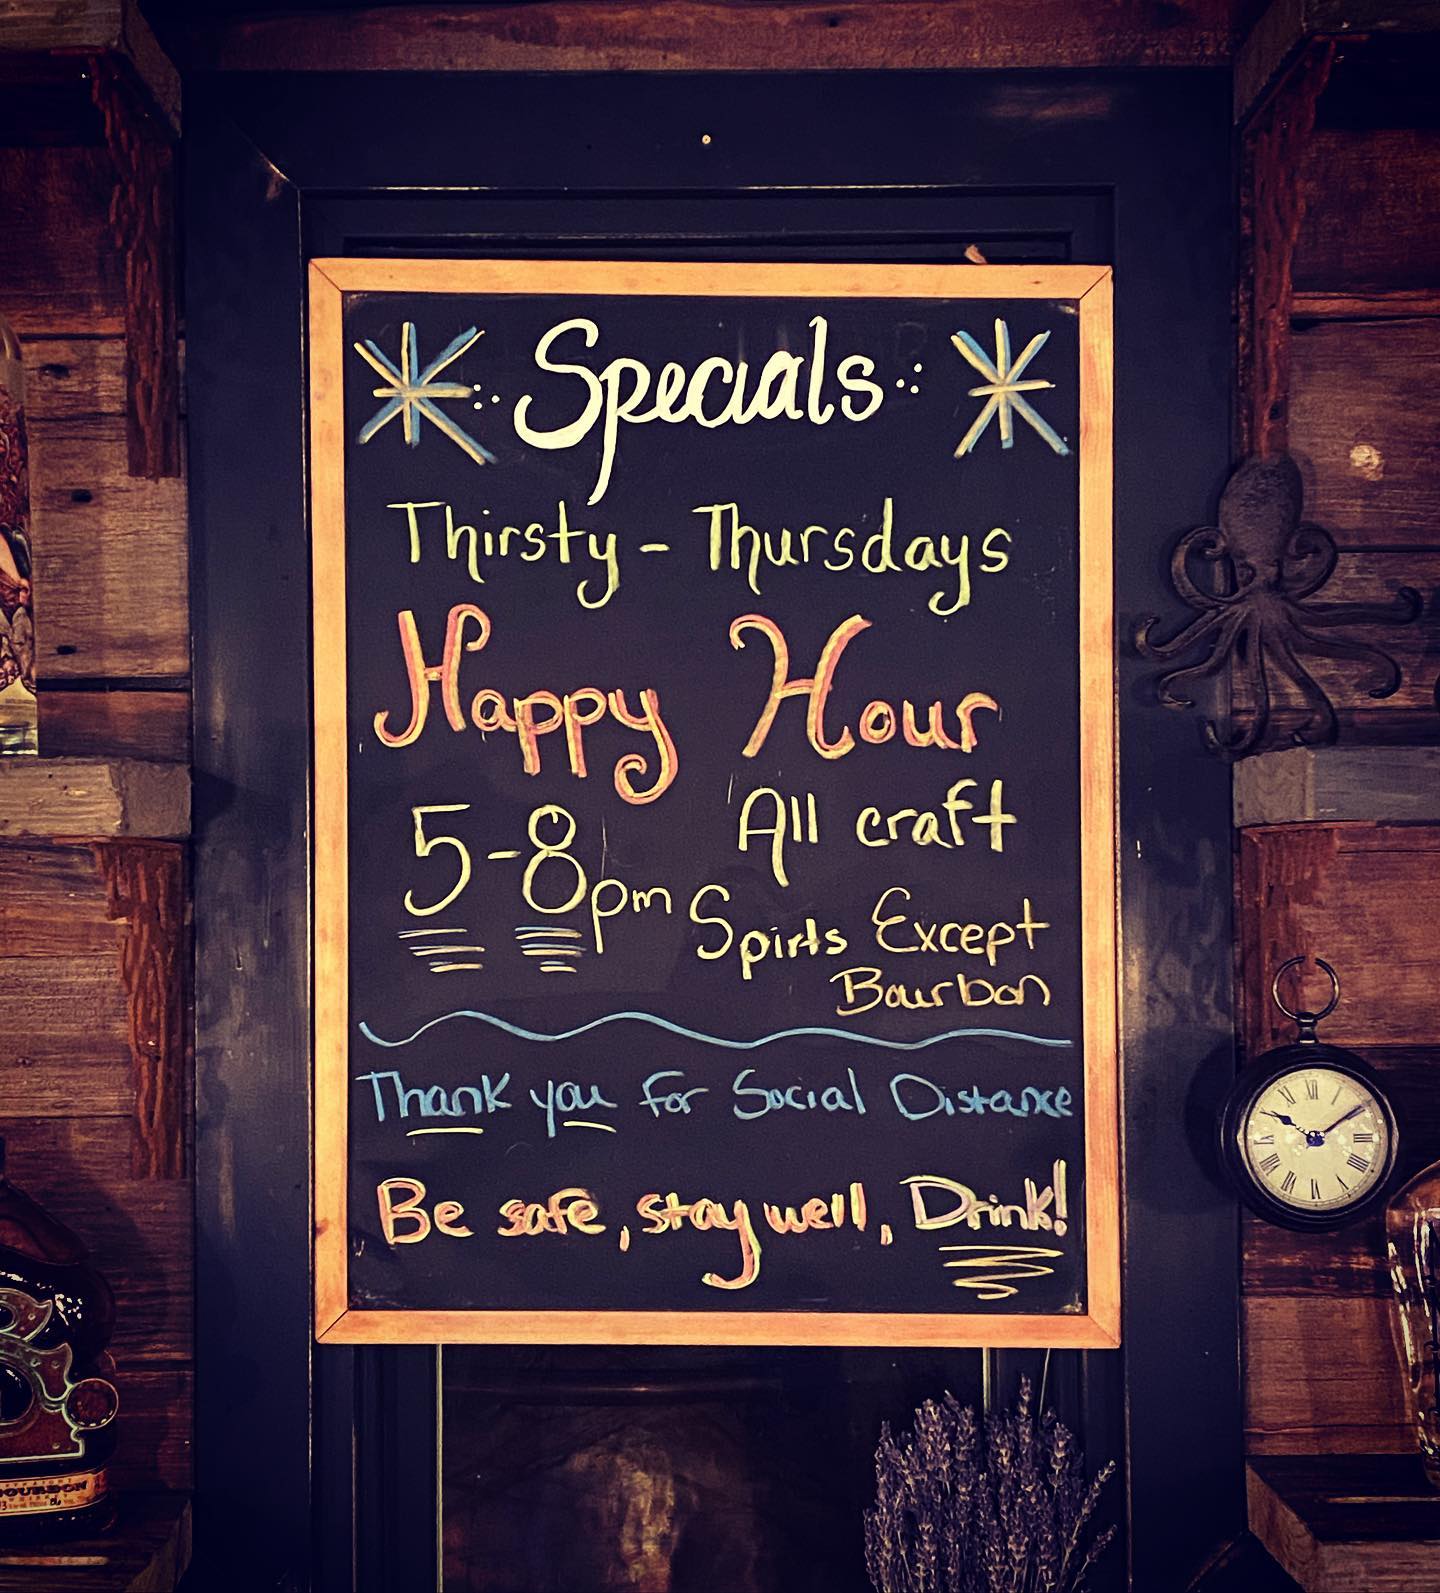 Specials
Thirsty - Thursdays
Happy Hour
5-8pm
All craft
Spirts Except
Bourbon
Thank you for Social Distance
Be safe, stay well, Drink!
BOURBON